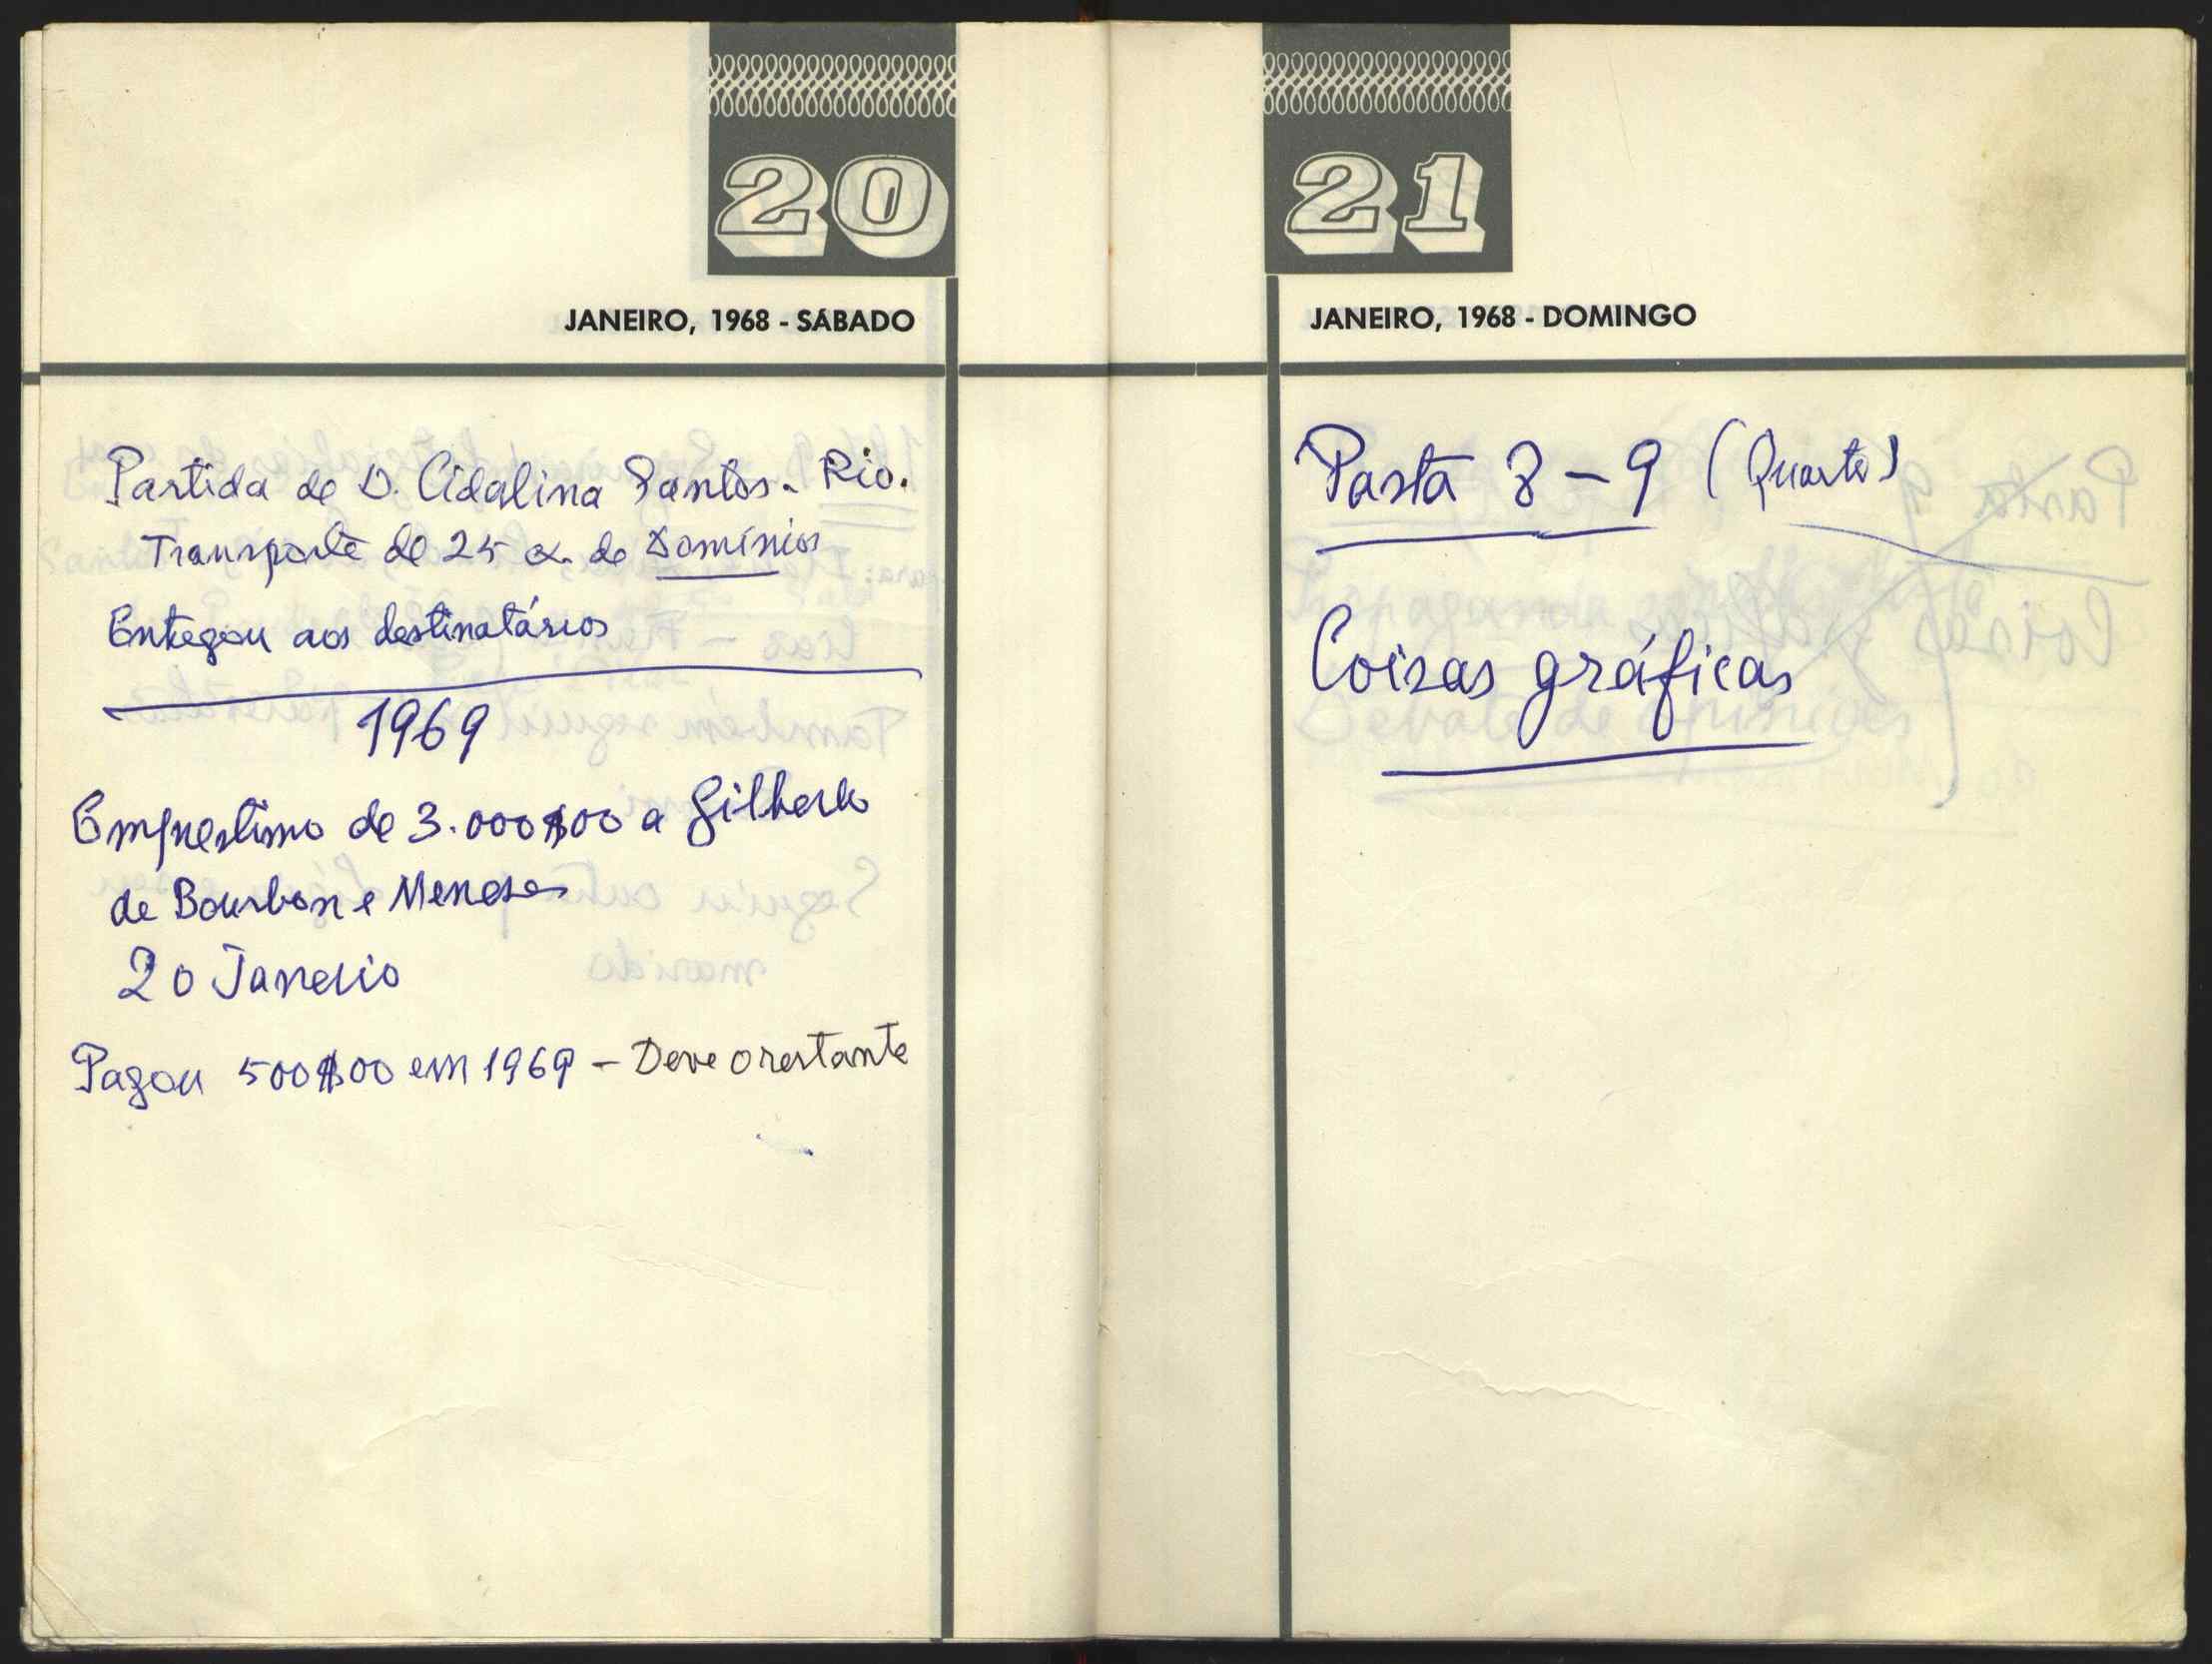 20
JANEIRO, 1968 - SÁBADO
Partida de D. Cidalina Santos. Rio.
Transporte de 25 ex. de Domínios
Entregou aos destinatários
1969
Emprestimo de 3.000$00 a Gilberto
de Bourbon e Meneses
20 Janeiro
Pagou 500$00 em 1969 - Deve o restante
21
JANEIRO, 1968 - DOMINGO
Pasta 8 - 9 (Quarto)
Coisas gráficas